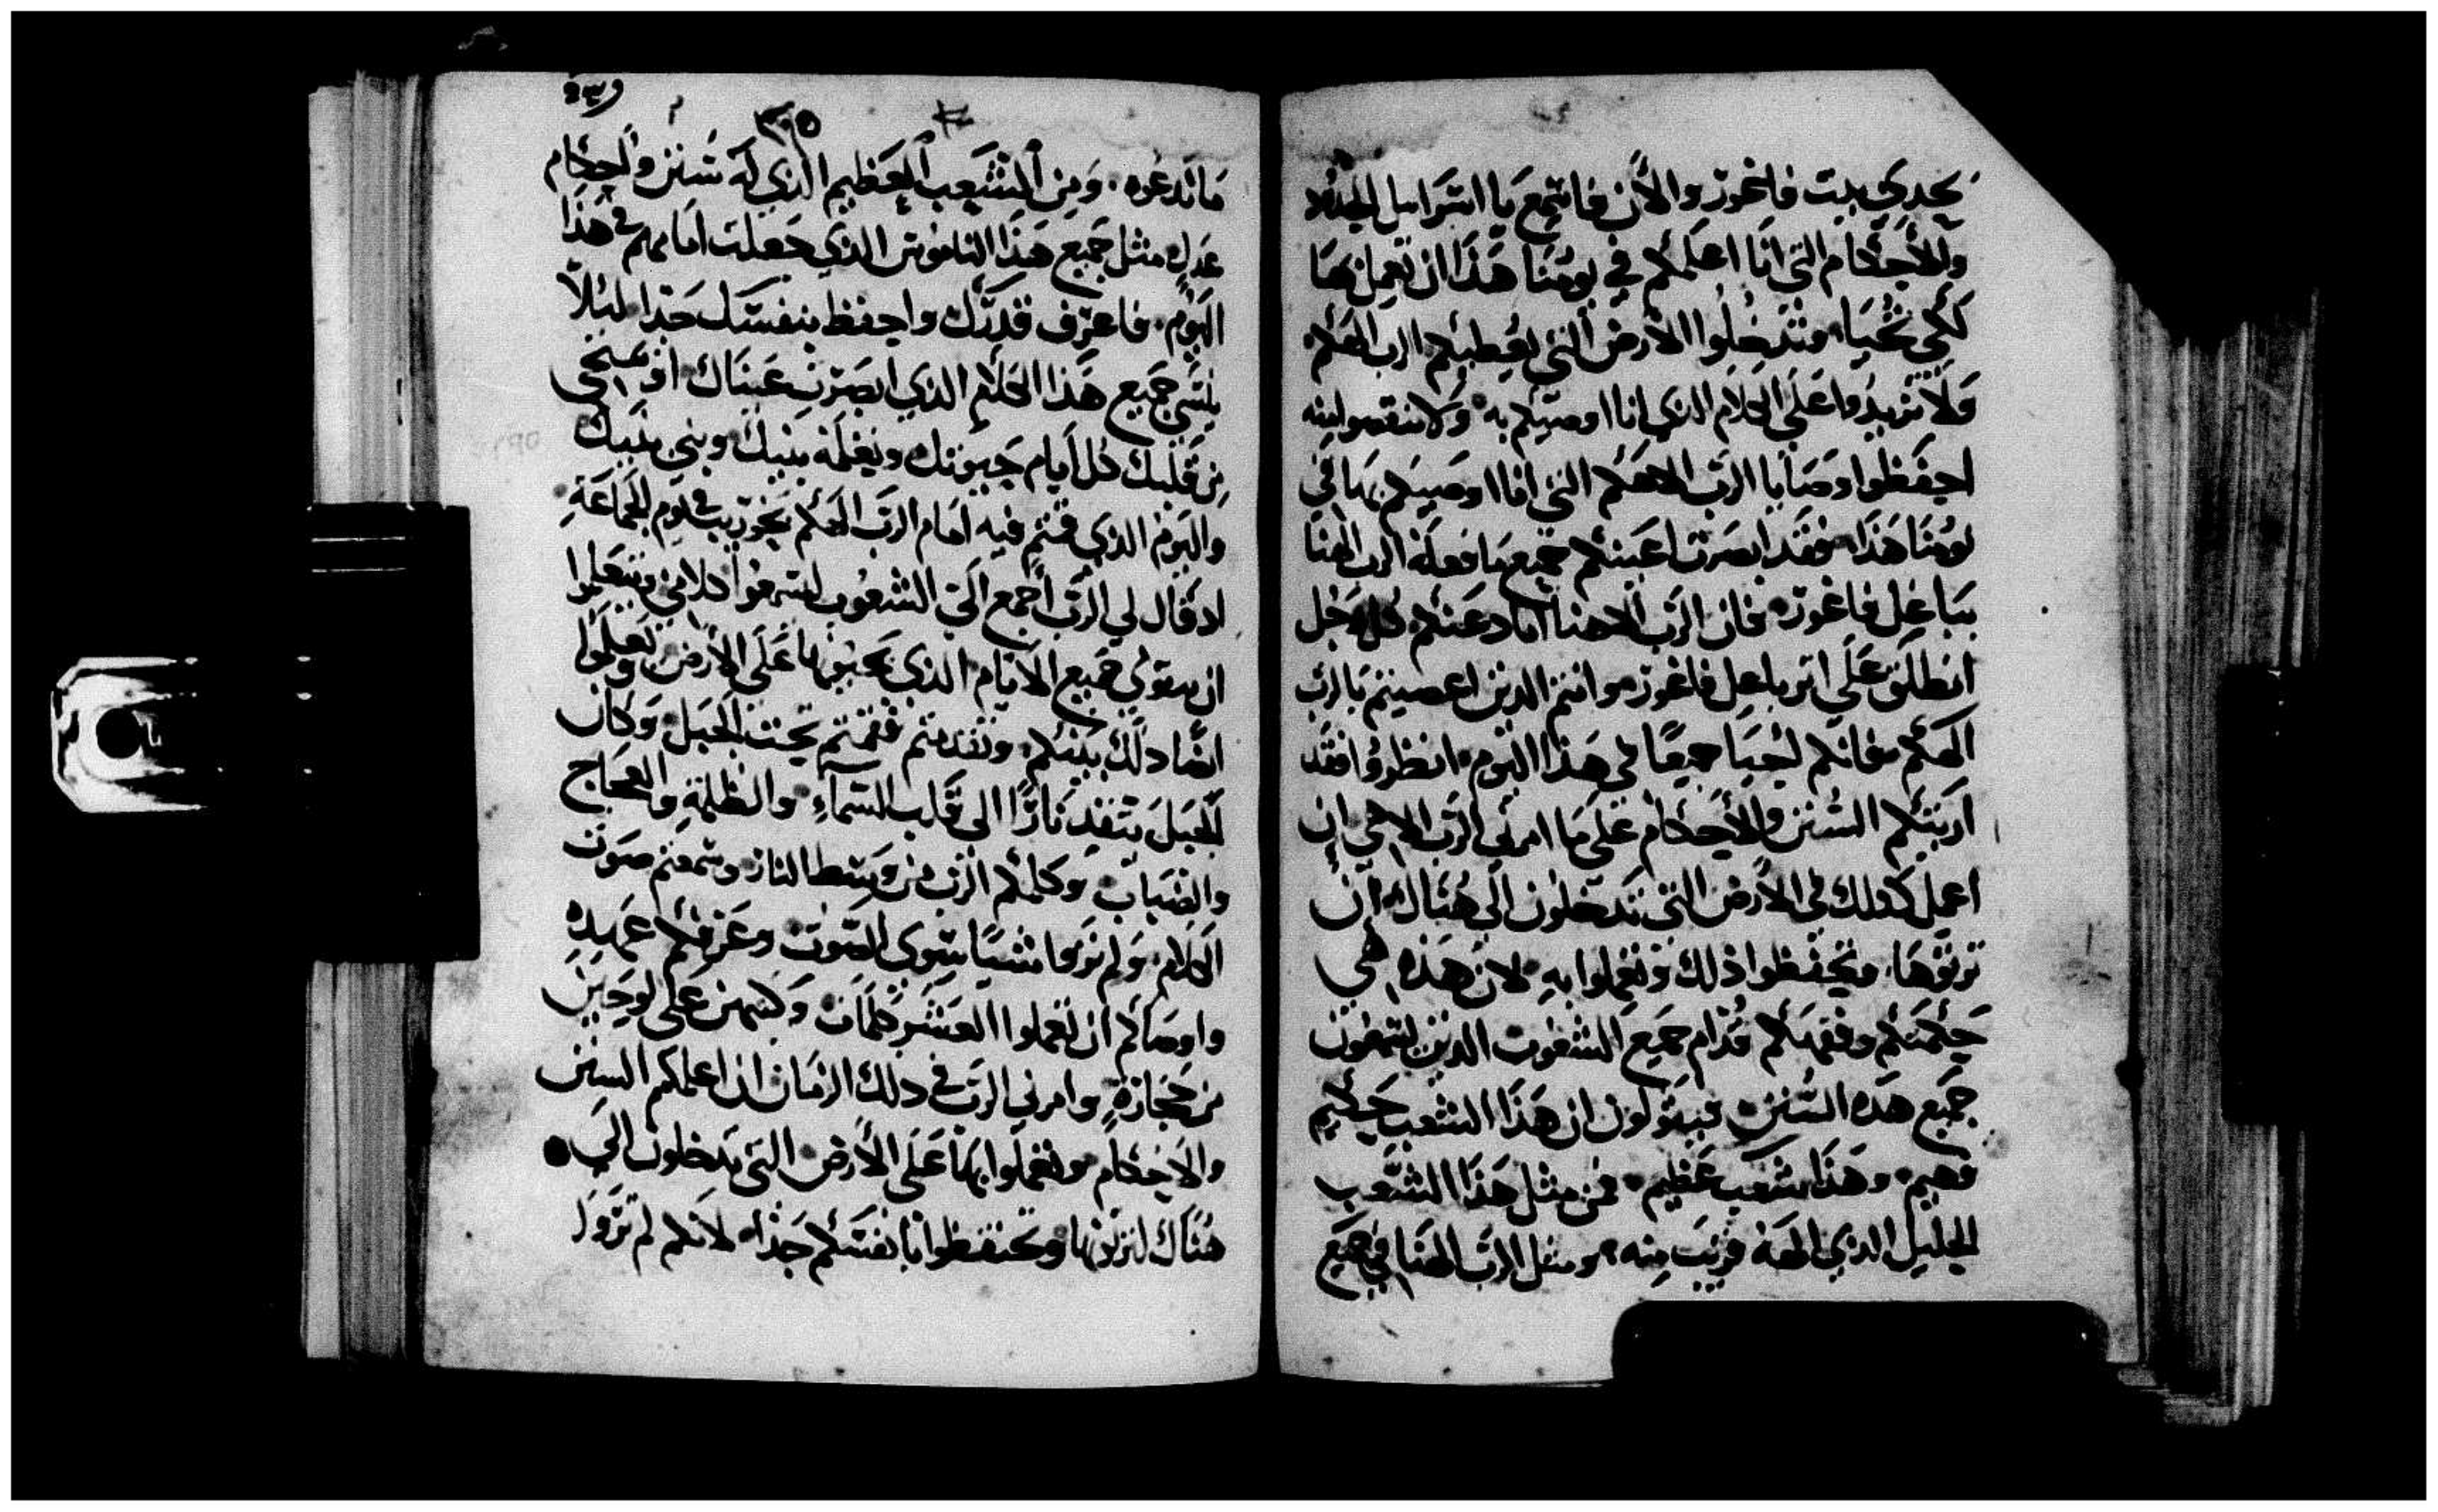 يحدي بيت فاغور والأن فاسمع يا اسراييل السنن
والأحكام التي انا اعلمكم في يومنا هذا ان تعمل بها
لكي تحيا وتدخلوا الارض التي يعطيكم الرب الهكم
ولا تزيدوا على الكلام الذي انا اوصيكم به ولا تنقصوا منه
احفظوا وصايا الرب الاهكم التي انا اوصيكم بها في
يومنا هذا فقد ابصرت اعينكم جميع ما فعله الرب الهنا
بباعل فاغور فان الرب الاهنا اباد عنكم كل رجل
انطلق على اثر باعل فاغور وانتم الدين اعصيتم بالرب
الهكم فانكم احيا جميعا في هذا اليوم انظروا فقد
اريتكم السنن والأحكام على ما امرني الرب الاهي ان
اعمل كدلك في الارض التي تدخلون الى هناك ان
ترتوها وتحفظوا ذلك وتعملوا به لان هذه هي
حكمتكم وفهمكم قدام جميع الشعوب الدين يسمعون
جميع هده السنن فيقولون ان هذا الشعب حكيم
وفهيم وهذا شعب عظيم فمن مثل هذا الشعب
الجليل الذي الهه قريب منه ومثل الرب الهنا في جميع
٢٣٩
٣٠٥
ما ندعوه ومن الشعب العظيم الذي له سنن واحكام
عدل مثل جميع هذا الناموس الذي جعلت امامهم في هذا
اليوم فاعرف قدرك واحفظ بنفسك جدا ليلا
ينسى جميع هذا الكلام الذي ابصرت عيناك او ينمحي
من قلبك كل ايام حيوتك وتعلمه بنيك وبني بنيك
واليوم الذي قمتم فيه امام الرب الهكم بحوريب في يوم الجماعة
اد قال لي الرب اجمع الي الشعوب ليسمعوا كلامي ويتعلموا
ان يتقوني جميع الايام الذي يحيون بها على الارض ويعلموا
ايضا دلك بنيكم وتقدمتم فقمتم تحت الجبل وكان
الجبل يتقد نارا الى قلب السماء والظلمة والعجاج
والضباب وكلمكم الرب من وسط النار وسمعتم صوت
الكلام ولم تروا شيا سوى الصوت وعرفكم عهده
واوصاكم ان تعملوا العشر كلمات وكتبهن على لوحين
من حجارة وامرني الرب في دلك الزمان ان اعلمكم السنن
والاحكام وتعملوا بها على الأرض التي تدخلون الى
هناك لترثوها وتحتفظوا بانفسكم جدا لانكم لم تروا